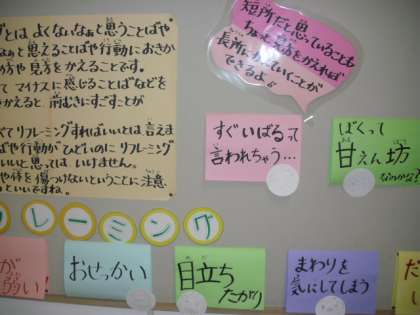 とは よくないなぁと思うことばや
なぁと思えることばや行動におきか
方や見方をかえることです。
て マイナスに感じることばなどを
かえると 前むきにすごすことが
くてリフレーミングすればいいとは言えま
ばや行動が てんどいのに リフレーミング
いいと思っては いけません。
や体を傷つけないということに注意
っといいですね。
短所だと思っていることも
ちょっと見方をかえれば
長所にかえていくことが
できるよ!!
すぐいばるって
言われちゃう…
ぼくって
甘えん坊
なのかな?
フレーミング
が
弱い!
おせっかい
目立ち
たがり
まわりを
気にしてしまう
だ
し